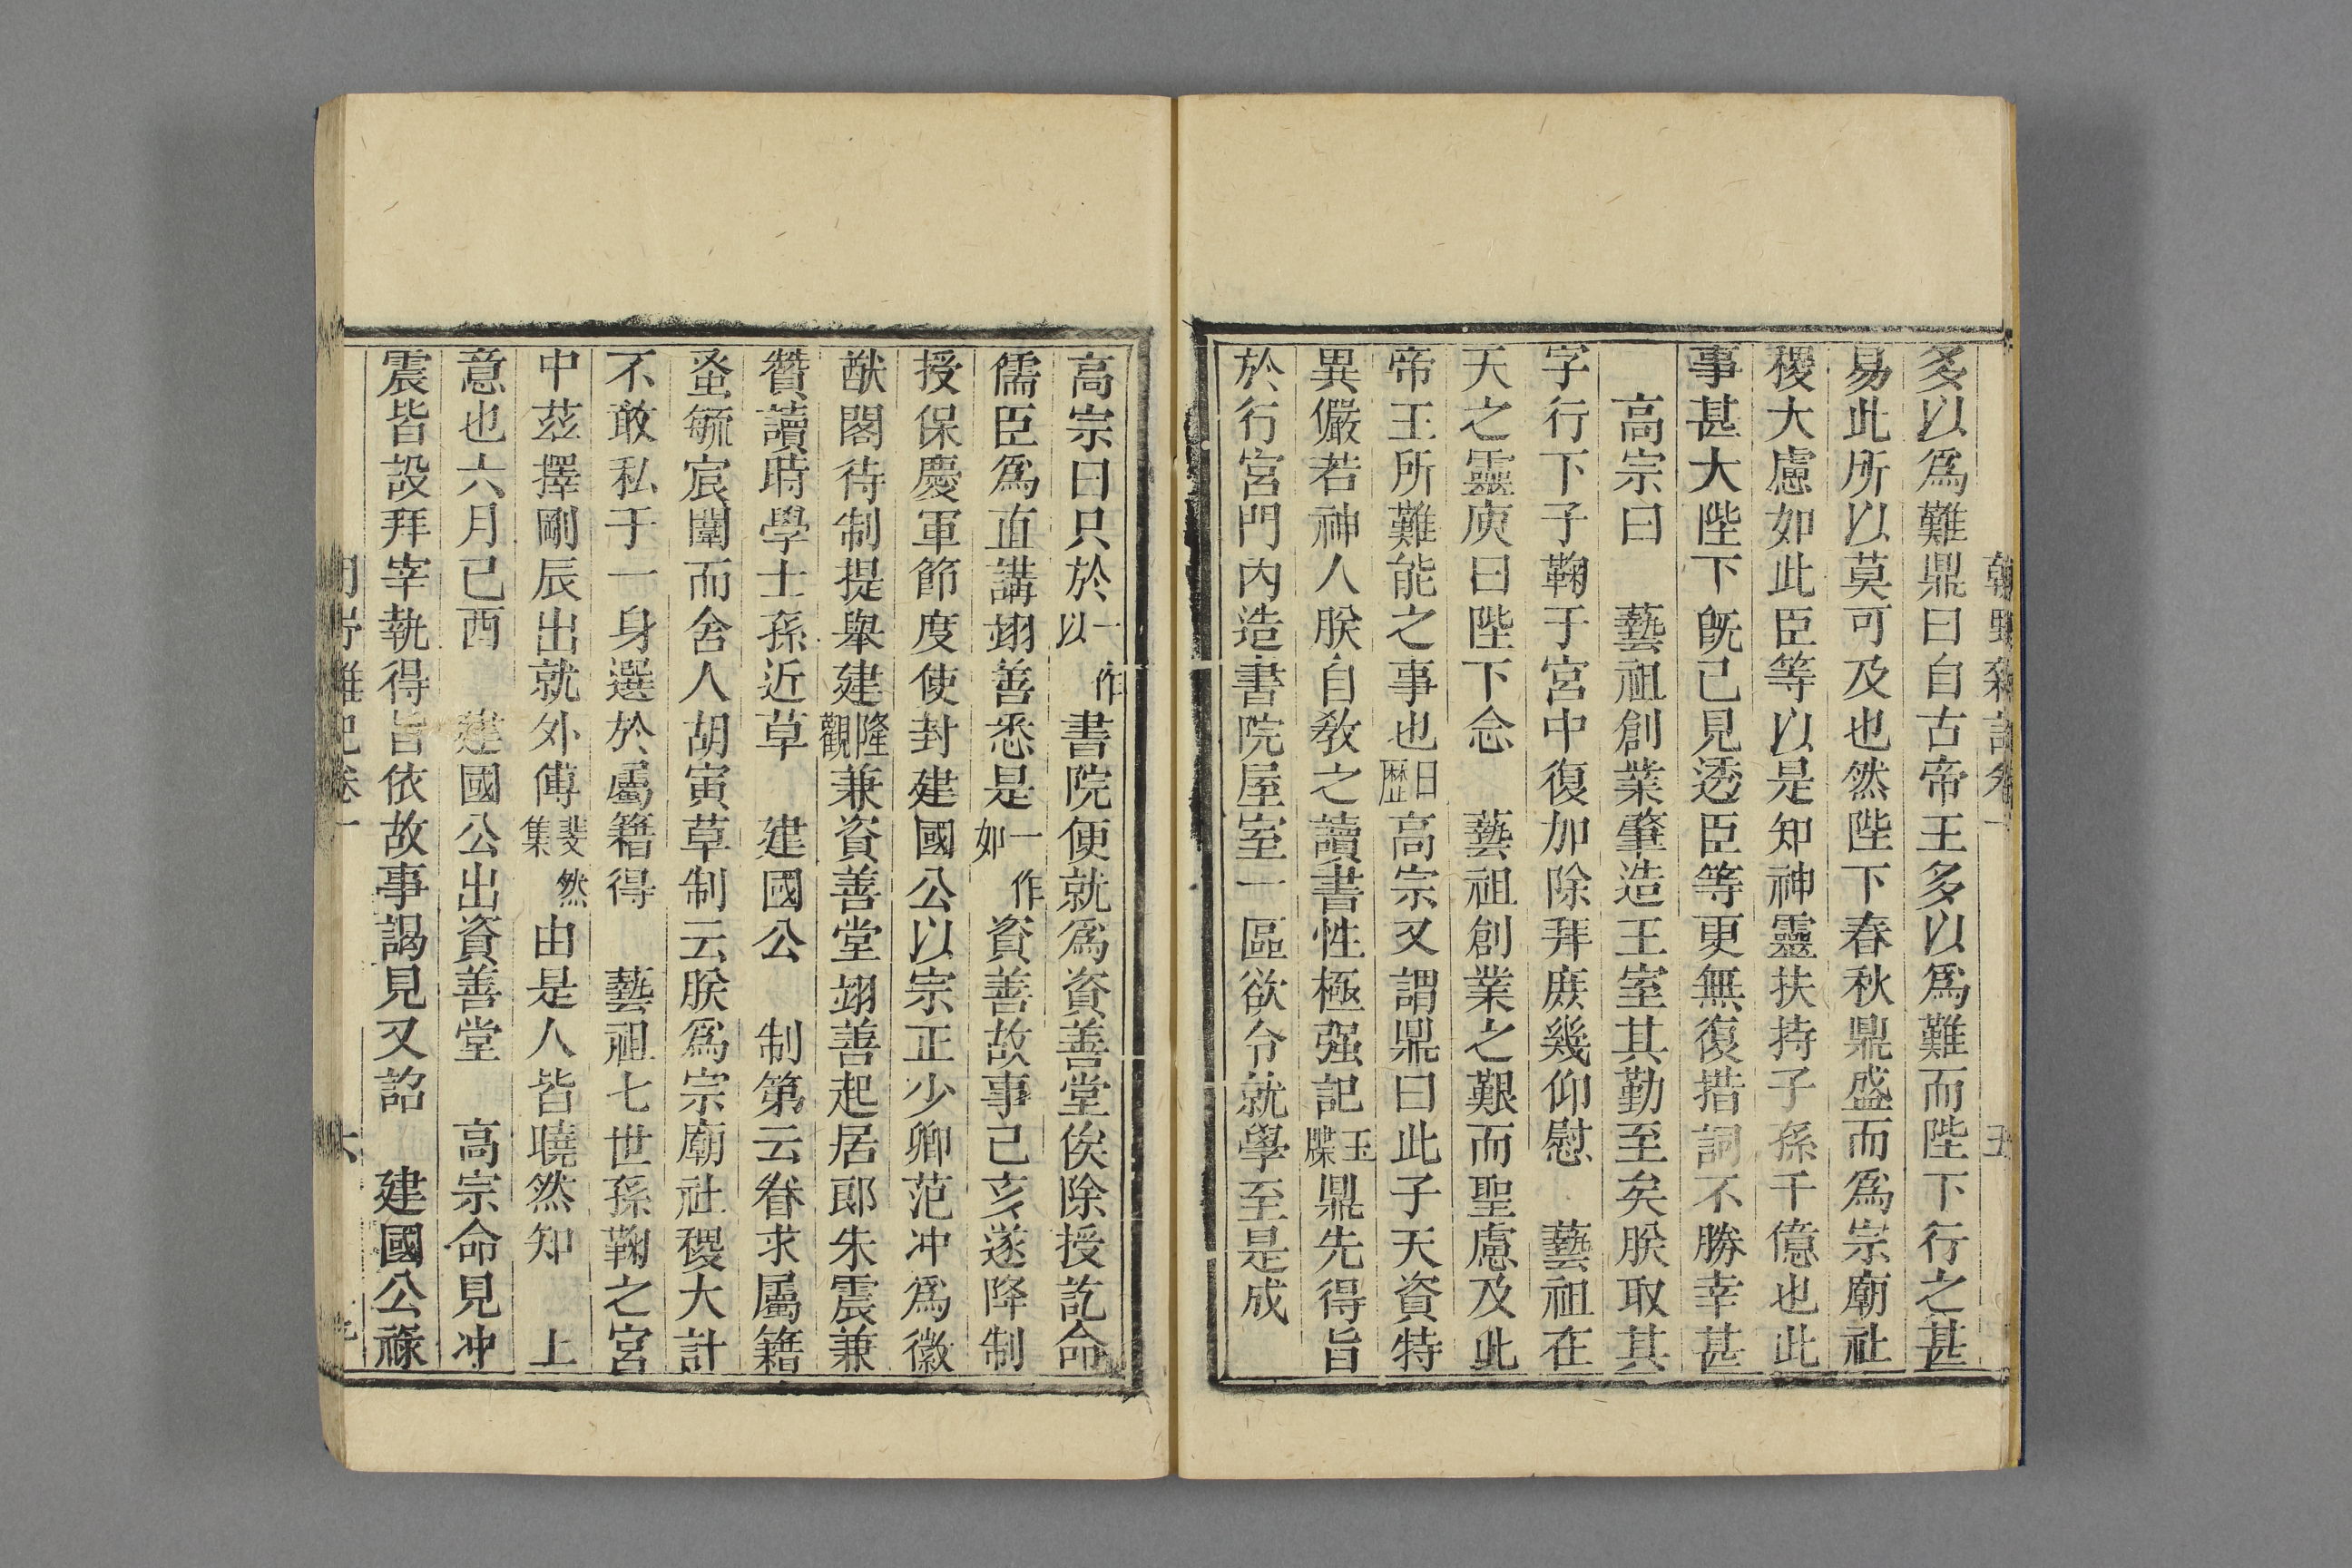 多以爲難鼎曰自古帝王多以爲難而陛下行之甚
易此所以莫可及也然陛下春秋鼎盛而爲宗廟社
稷大慮如此臣等以是知神靈扶持子孫千億也此
事甚大陛下旣已見透臣等更無復措詞不勝幸甚
高宗曰　藝祖創業肇造王室其勤至矣朕取其
字行下子鞠于宮中復加除拜庶幾仰慰　藝祖在
天之靈庾曰陛下念　藝祖創業之艱而聖慮及此
帝王所難能之事也日歷高宗又謂鼎曰此子天資特
異儼若神人朕自敎之讀書性極强記玉牒鼎先得旨
於行宮門內造書院屋室一區欲令就學至是成
高宗曰只於一作以書院便就爲資善堂俟除授訖命
儒臣爲直講翊善悉是一作如資善故事己亥遂降制
授保慶軍節度使封建國公以宗正少卿范冲爲徽
猷閣待制提舉建隆觀兼資善堂翊善起居郎朱震兼
贊讀時學士孫近草　建國公　制第云眷求屬籍
蚤毓宸闈而舍人胡寅草制云朕爲宗廟社稷大計
不敢私于一身選於屬籍得　藝祖七世孫鞠之宮
中茲擇剛辰出就外傅斐然集由是人皆曉然知　上
意也六月己酉　建國公出資善堂　高宗命見冲
震皆設拜宰執得旨依故事謁見又詔　建國公祿